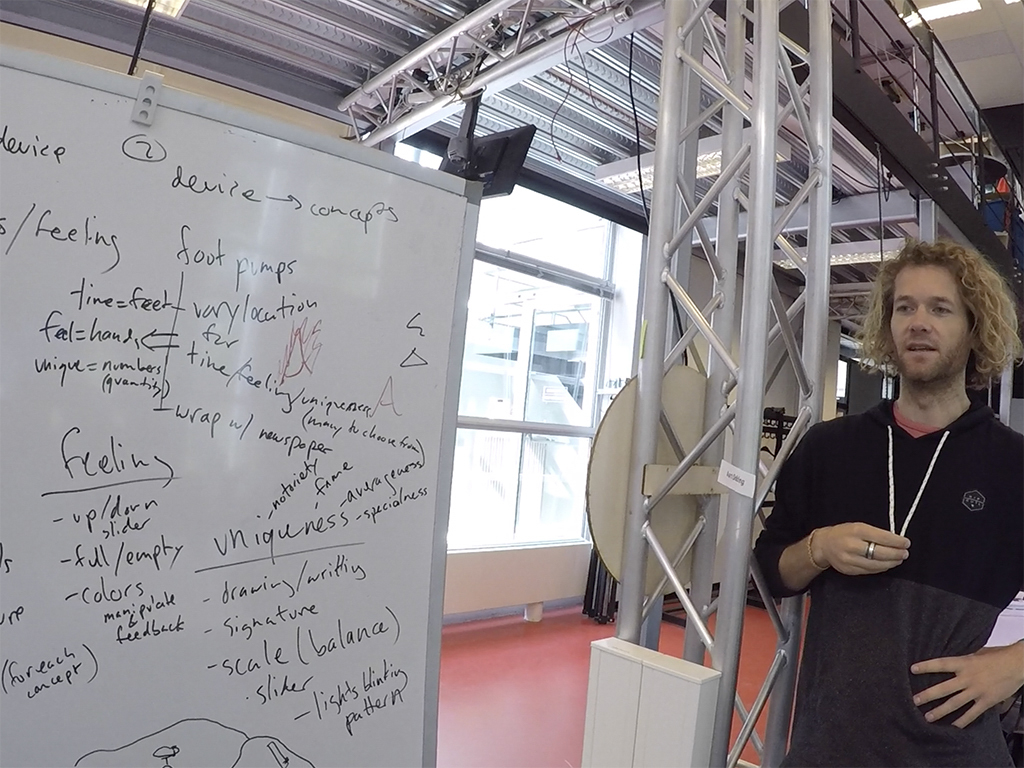 device
②
device → concepts
s/feeling
foot pumps
time=feet
feel=hands
unique=numbers
(quantity)
- vary location
for
time/feeling/uniqueness
(many to choose from)
A
- wrap w/ newspaper
feeling
- up/down
slider
- full/empty
- colors
manipulate
&
feedback
notoriety
fame
- averageness
- specialness
uniqueness
- drawing/writing
- signature
- scale (balance)
· slider
- lights blinking
pattern
(for each
concept)